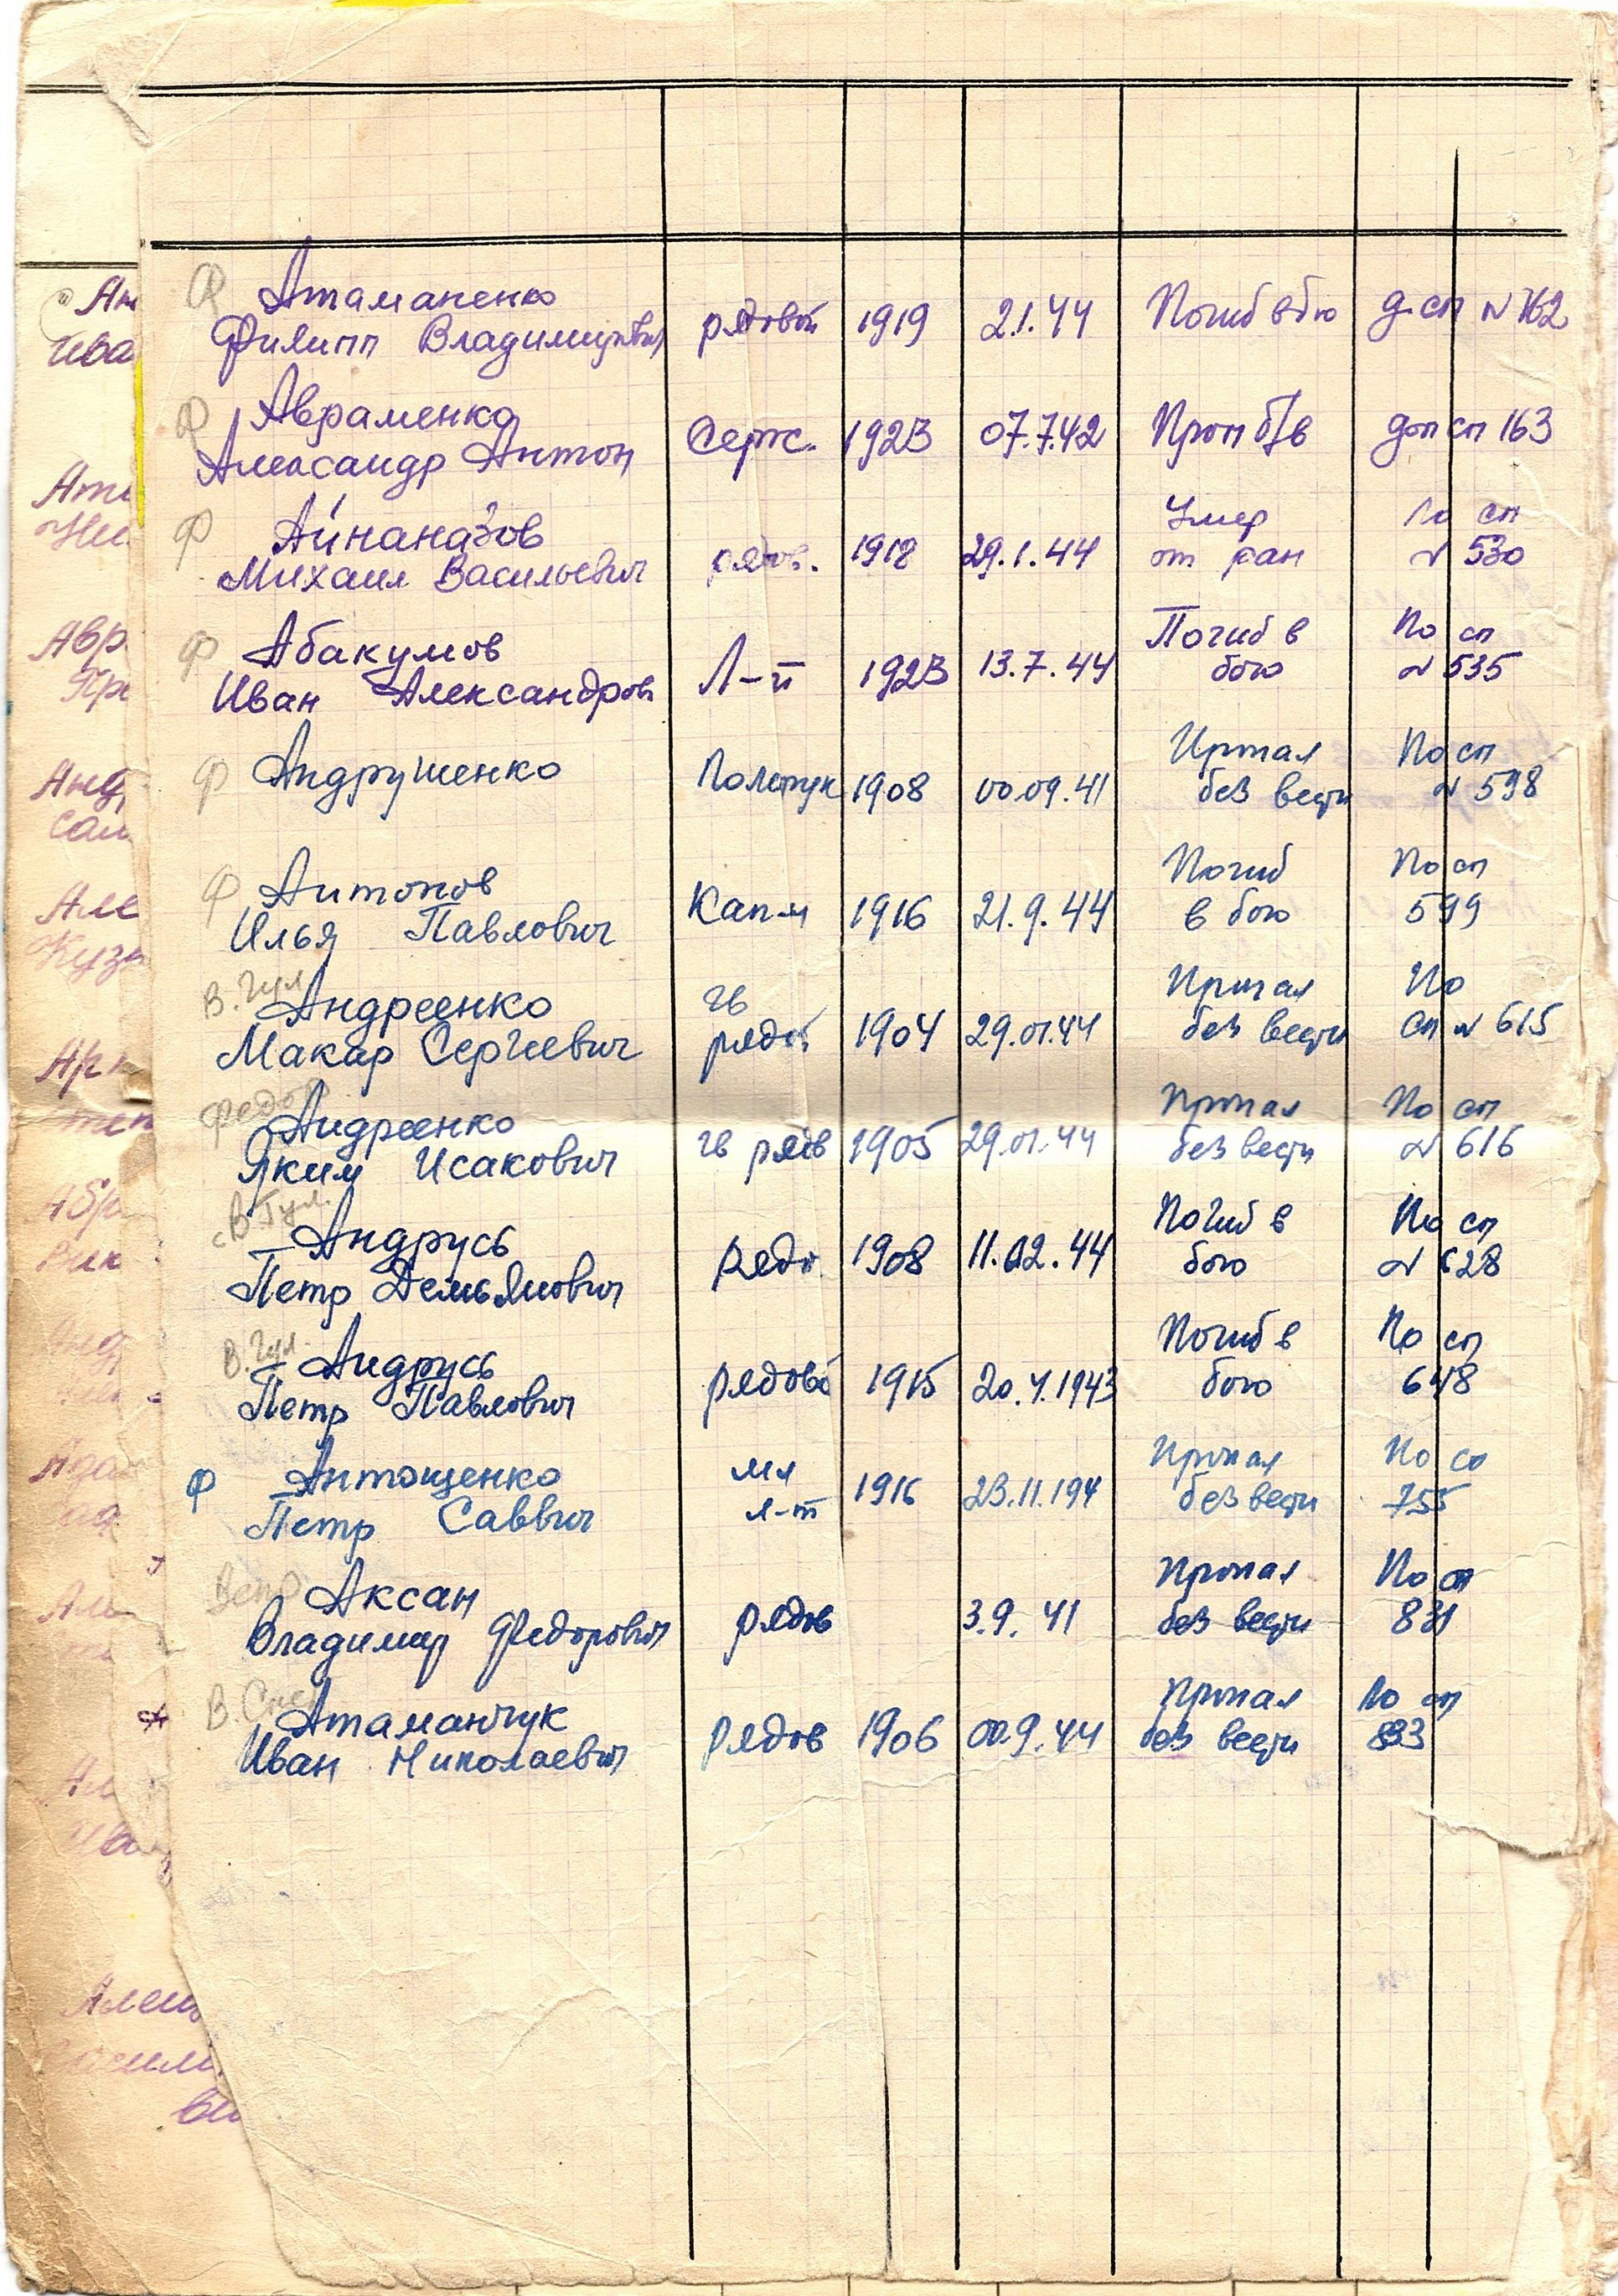 Ф Атаманенко
Филипп Владимирович рядовой 1919 2.1.44 Погиб в бою д. сп №162
Ф Авраменко
Александр Антон Серж. 1923 07.7.42 Проп б/в доп сп 163
Ф Айнаназов Умер По сп
Михаил Васильевич рядов. 1918 29.1.44 от ран № 530
Ф Абакумов Погиб в По сп
Иван Александров Л-т 1923 13.7.44 бою № 535
Ф Андрушенко Пропал По сп
Политрук 1908 00.09.41 без вести № 598
Ф Антонов Погиб По сп
Илья Павлович Кап-н 1916 21.9.44 в бою 599
В. Гул Андреенко гв Пропал По
Макар Сергеевич рядов 1904 29.01.44 без вести Сп № 615
Федор Андреенко Пропал По сп
Яким Исакович гв ряд 1905 29.01.44 без вести № 616
с В. Гул. Андрусь Погиб в По сп
Петр Демьянович рядо. 1908 11.02.44 бою № 628
В. Гул. Андрусь Погиб в По сп
Петр Павлович рядово 1915 20.4.1943 бою 648
Ф Антощенко мл Пропал По сп
Петр Саввич л-т 1916 23.11.194 без вести 755
Аксан Пропал По сп
Владимир Федорович рядов 3.9.41 без вести 831
Атаманчук Пропал По сп
Иван Николаевич Рядов 1906 00.9.44 без вести 833